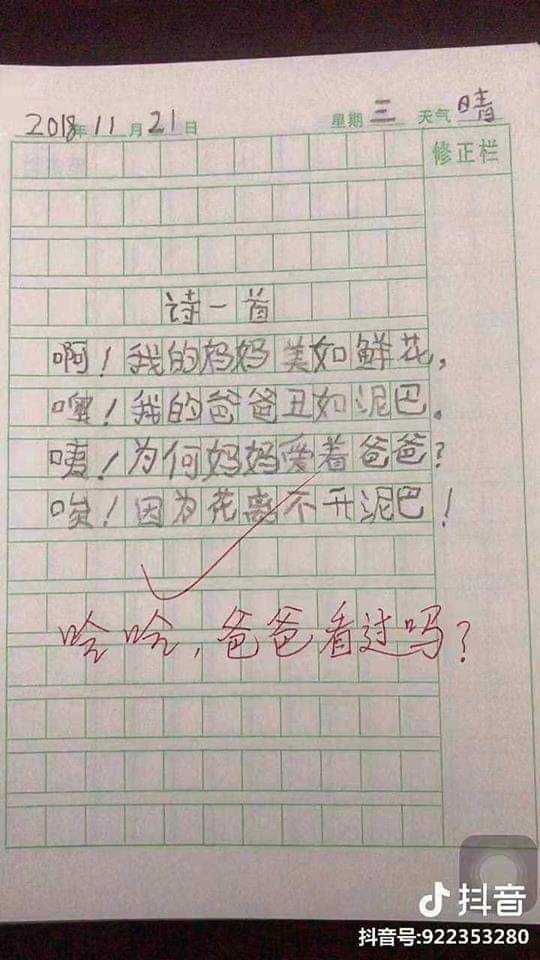 2018年11月21日 星期三 天气晴
修正栏
诗一首
啊！我的妈妈美如鲜花，
噢！我的爸爸丑如泥巴。
咦！为何妈妈爱着爸爸？
唉！因为花离不开泥巴！
哈哈，爸爸看过吗？
抖音
抖音号:922353280